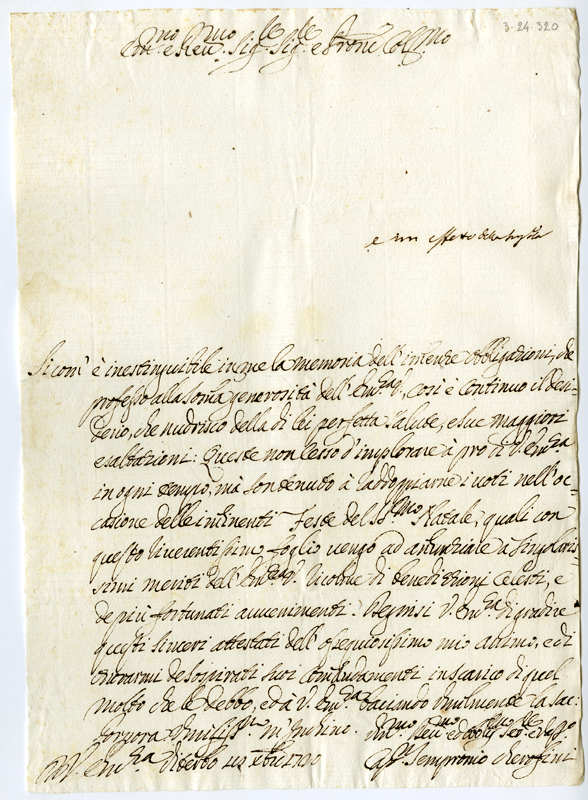 3-24.320
Em.mo e Reu.mo Sig.r Sig.r e Pron Col.mo
e un effetto della
Si com' è inestinguibile in me la memoria dell'intense obbligazioni, che
professo alla somma generosità dell'Em.za V., così è continuo il desi=
derio, che nudrisco della di lei perfetta salute, e sue maggiori
esaltazioni: Queste non cesso d'implorare à prò di V. Em.za
in ogni tempo, mà son tenuto à raddoppiarne i voti nell'oc=
casione delle imminenti Feste del SS.mo Natale, quali con
questo riverentissimo foglio vengo ad annunziare a singularis=
simi meriti dell'Em.za V. ricolme di benedizzioni celesti, e
de più fortunati auuenimenti. Degnisi V. Em.za di gradire
questi sinceri attestati dell'ossequiosissimo mio animo, e di
onorarmi de sospirati suoi comandamenti in scarico di quel
molto che le debbo, ed à V. Em.za baciando umilmente la sac:
porpora umiliss.te m'inchino.
Di V. Em.za Viterbo 1710
Um.mo Deu.mo ed Obl.mo Ser.re
Sempronio Cherofini